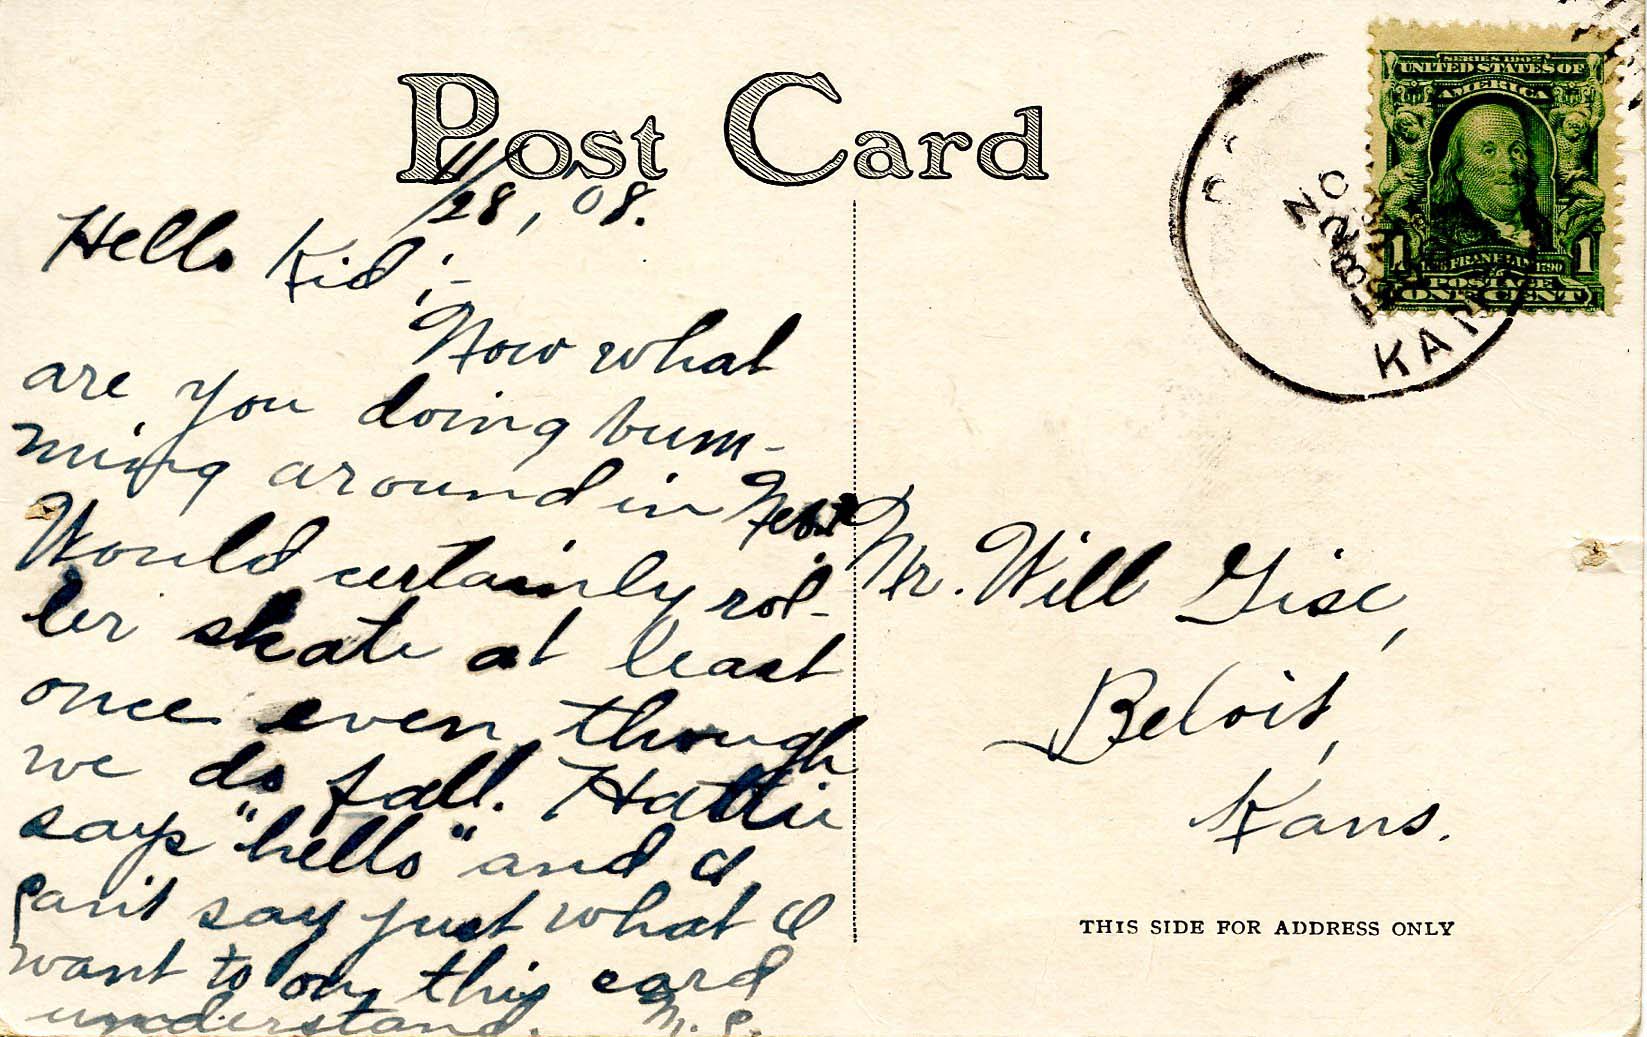 Post Card
11/28, '08.
Hello Kid;-
Now what
are you doing bum-
ming around in Neb.?
Would certainly rol-
ler skate at least
once even though
we do fall. Hattie
says "hello" and I
can't say just what I
want to on this card
understand.
Mr. Will Gise,
Beloit,
Kans.
THIS SIDE FOR ADDRESS ONLY
KAN
NO
SERIES 1902
UNITED STATES OF
AMERICA
1 FRANKLIN 1790 1
POSTAGE
ONE CENT